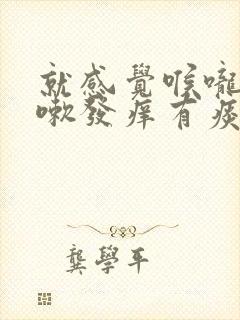 就感覺喉嚨
嗽發痒有痰
龔學平